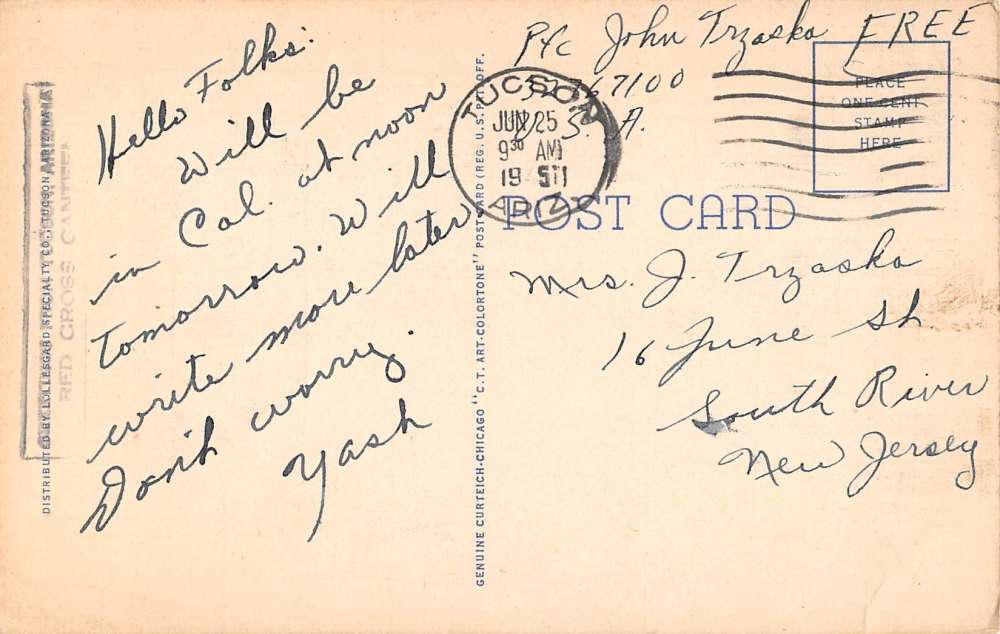 Hello Folks:
Will be
in Cal. at noon
tomorrow. Will
write more later
Don't worry.
Yash
DISTRIBUTED BY LOLLESGARD SPECIALTY CO., TUCSON, ARIZONA
RED CROSS CANTEEN
GENUINE CURTEICH-CHICAGO "C.T. ART-COLORTONE" POST CARD (REG. U.S. PAT. OFF.
Pfc John Trzaska FREE
67100
U. S. A.
TUCSON
JUN 25
9 30 AM
19
ARIZ
PLACE
ONE CENT
STAMP
HERE
POST CARD
Mrs. J. Trzaska
16 June St
South River
New Jersey